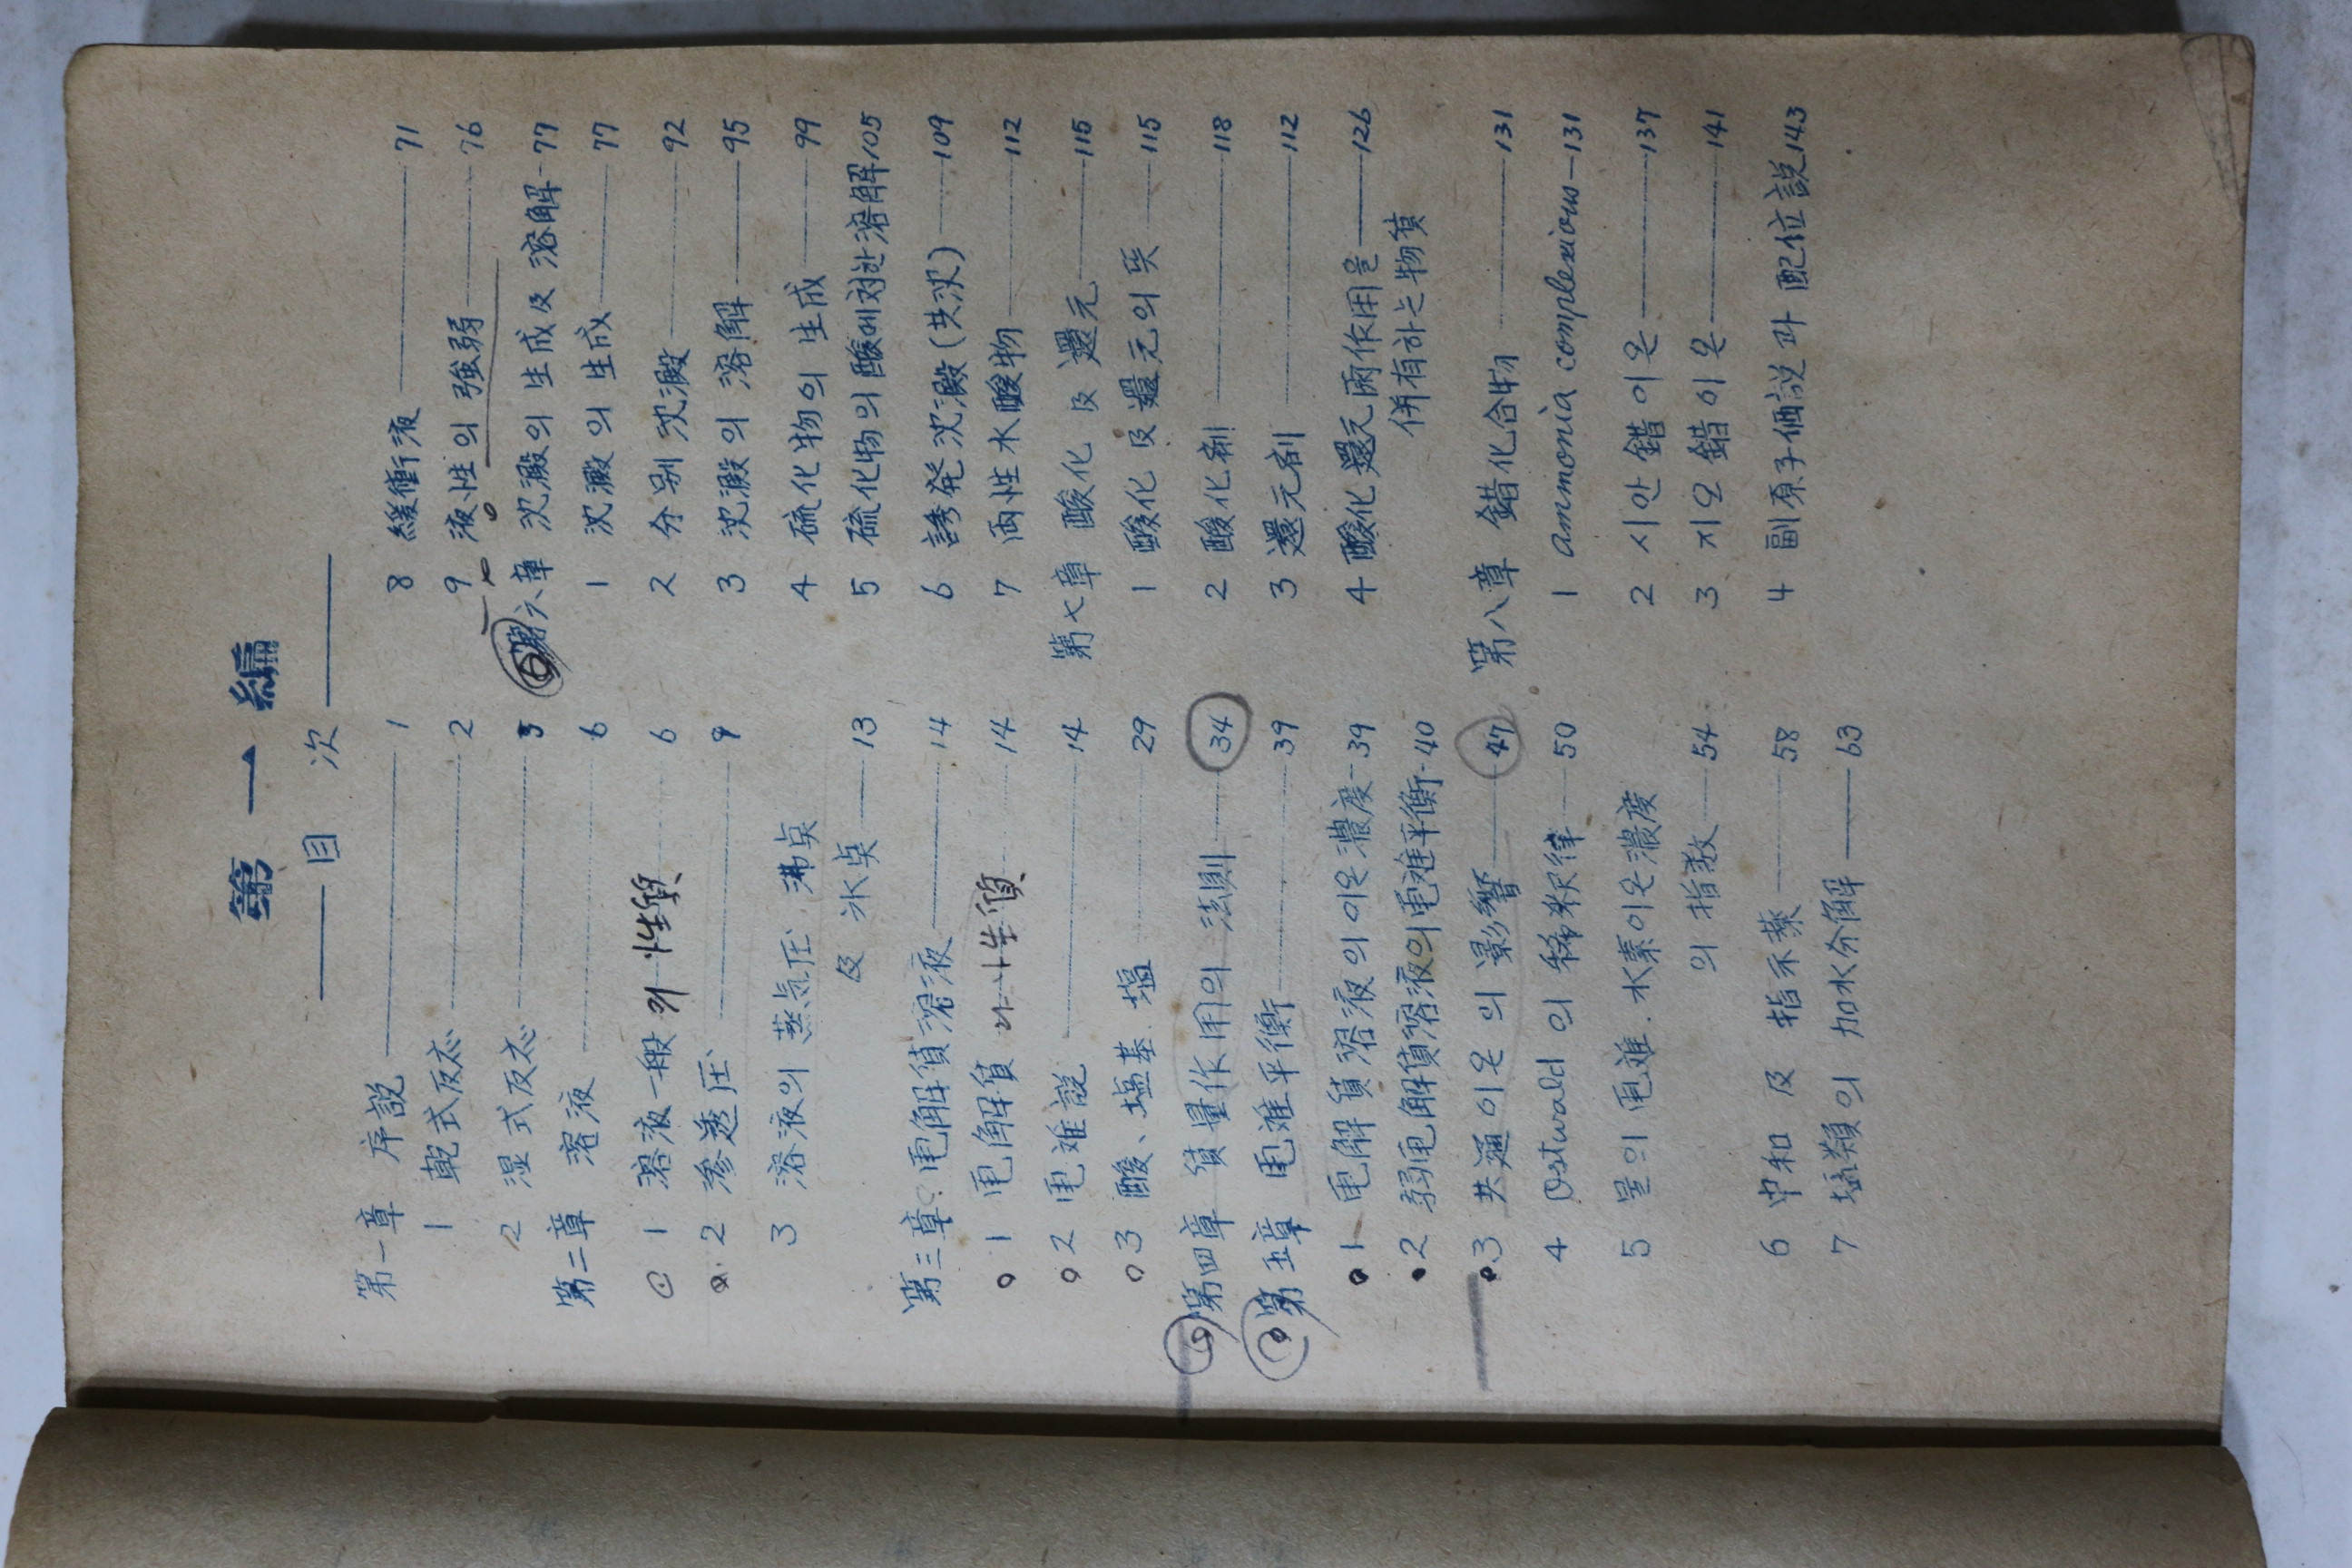 第一編
目次
第一章 序説 1
1 乾式反応 2
2 湿式反応 5
第二章 溶液 6
1 溶液一般의 性質 6
2 滲透圧 9
3 溶液의 蒸気圧 沸点
及 氷点 13
第三章 电解質溶液 14
1 电解質 의 性質 14
2 电难説 14
3 酸、塩基 塩 29
第四章 質量作用의 法則 34
第五章 电难平衡 39
1 电解質溶液의 이온濃度 39
2 弱电解質溶液의 电难平衡 40
3 共通이온의 影響 47
4 Ostwald 의 稀釈律 50
5 물의 电难. 水素이온濃度
의 指数 54
6 中和 及 指示薬 58
7 塩類의 加水分解 63
8 緩衝液 71
9 液性의 強弱 76
第六章 沈澱의 生成及 溶解 77
1 沈澱의 生成 77
2 分别沈澱 92
3 沈澱의 溶解 95
4 硫化物의 生成 99
5 硫化物의 酸에対한溶解 105
6 誘発沈澱(共沈) 109
7 両性水酸物 112
第七章 酸化 及 還元 115
1 酸化 及 還元의 뜻 115
2 酸化剤 118
3 還元剤 112
4 酸化還元兩作用을 126
併有하는物質
第八章 錯化合物 131
1 ammonia complexious 131
2 시안錯이온 137
3 지오錯이온 141
4 副原子価説과 配位説 143